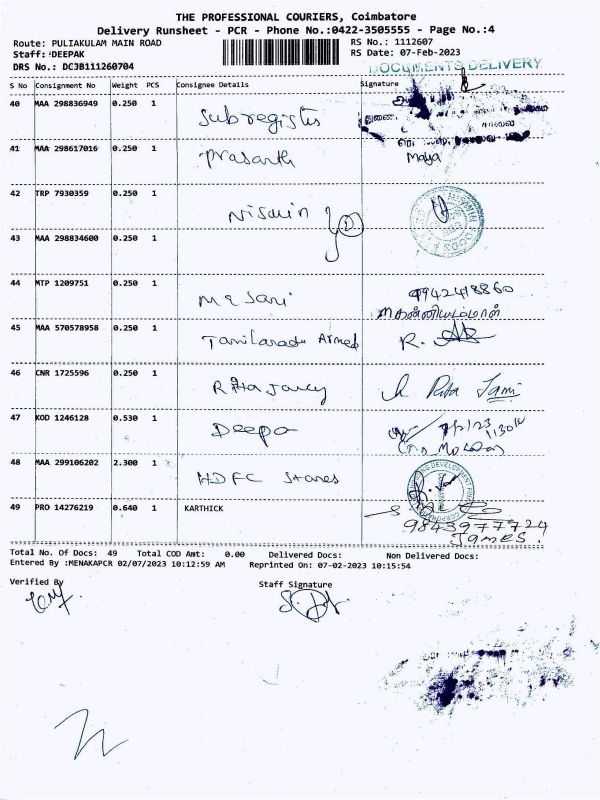 THE PROFESSIONAL COURIERS, Coimbatore
Delivery Runsheet - PCR - Phone No.:0422-3505555 - Page No.:4
Route: PULIAKULAM MAIN ROAD
RS No.: 1112607
Staff: DEEPAK
RS Date: 07-Feb-2023
DRS No.: DC3B111260704
DOCUMENTS DELIVERY
S No Consignment No Weight PCS Consignee Details Signature
40 MAA 298836949 0.250 1
41 MAA 298617016 0.250 1 Prasanth
42 TRP 7930359 0.250 1
43 MAA 298834600 0.250 1
44 MTP 1209751 0.250 1 9942418860
45 MAA 570578958 0.250 1 R.
46 CNR 1725596 0.250 1 Rita
47 KOD 1246128 0.530 1 Deepa
48 MAA 299106202 2.300 1 HDFC Stanes
49 PRO 14276219 0.640 1 KARTHICK
9843977724
JAMES.
Total No. Of Docs: 49 Total COD Amt: 0.00 Delivered Docs: Non Delivered Docs:
Entered By :MENAKAPCR 02/07/2023 10:12:59 AM Reprinted On: 07-02-2023 10:15:54
Verified By
Staff Signature